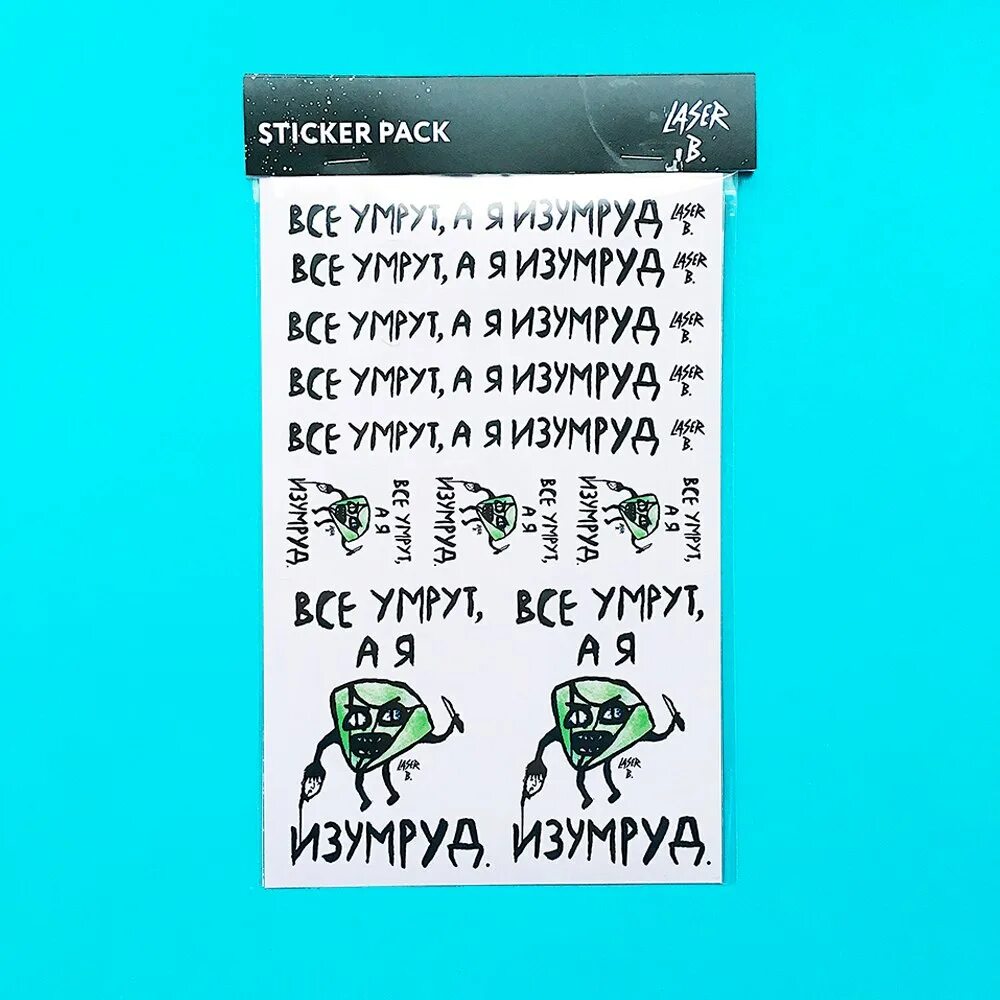 STICKER PACK
LASER
B.
ВСЕ УМРУТ, А Я ИЗУМРУД LASER B.
ВСЕ УМРУТ, А Я ИЗУМРУД LASER B.
ВСЕ УМРУТ, А Я ИЗУМРУД LASER B.
ВСЕ УМРУТ, А Я ИЗУМРУД LASER B.
ВСЕ УМРУТ, А Я ИЗУМРУД LASER B.
ВСЕ УМРУТ,
А Я
ИЗУМРУД.
ВСЕ УМРУТ,
А Я
ИЗУМРУД.
ВСЕ УМРУТ,
А Я
ИЗУМРУД.
ВСЕ УМРУТ,
А Я
LASER
B.
ИЗУМРУД.
ВСЕ УМРУТ,
А Я
LASER
B.
ИЗУМРУД.